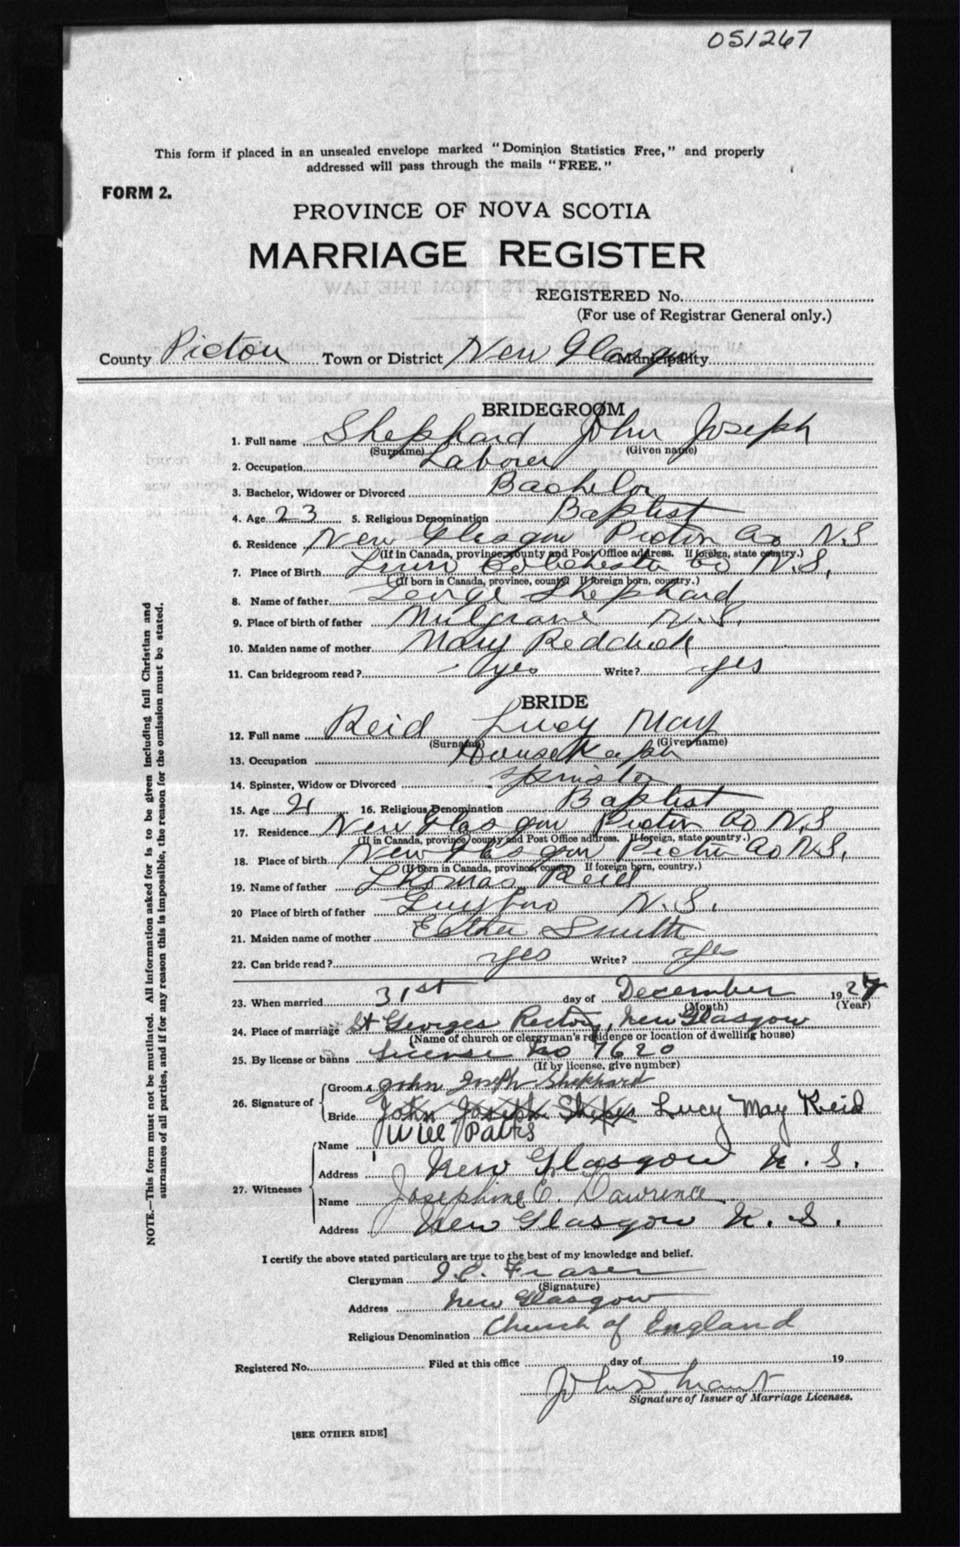 051267
This form if placed in an unsealed envelope marked "Dominion Statistics Free," and properly
addressed will pass through the mails "FREE."
FORM 2.
PROVINCE OF NOVA SCOTIA
MARRIAGE REGISTER
REGISTERED No.
(For use of Registrar General only.)
County Pictou Town or District New Glasgow Municipality
BRIDEGROOM
1. Full name Shephard John Joseph
(Surname) (Given name)
2. Occupation Laborer
3. Bachelor, Widower or Divorced Bachelor
4. Age 23 5. Religious Denomination Baptist
6. Residence New Glasgow Pictou Co N.S
(If in Canada, province county and Post Office address. If foreign, state country.)
7. Place of Birth Truro Colchester Co N.S.
(If born in Canada, province, county If foreign born, country.)
8. Name of father George Shephard
9. Place of birth of father Mulgrave N.S.
10. Maiden name of mother Mary Reddick
11. Can bridegroom read? yes Write? yes
BRIDE
12. Full name Reid Lucy May
(Surname) (Given name)
13. Occupation
14. Spinster, Widow or Divorced Spinster
15. Age 21 16. Religious Denomination Baptist
17. Residence New Glasgow Pictou Co N.S
(If in Canada, province/county and Post Office address. If foreign, state country.)
18. Place of birth New Glasgow Pictou Co N.S.
(If born in Canada, province, county If foreign born, country.)
19. Name of father Thomas Reid
20 Place of birth of father Guysboro N.S.
21. Maiden name of mother Esther Smith
22. Can bride read? yes Write? yes
23. When married 31st day of December 1927
(Month) (Year)
24. Place of marriage St Georges Rectory, New Glasgow
(Name of church or clergyman's residence or location of dwelling house)
25. By license or banns License No 7620
(If by license, give number)
26. Signature of
Groom x John Joseph Shephard
Bride John Joseph Lucy May Reid
27. Witnesses
Name Will Patts
Address New Glasgow N.S.
Name Josephine E. Lawrence
Address New Glasgow N.S.
I certify the above stated particulars are true to the best of my knowledge and belief.
Clergyman Fraser
(Signature)
Address New Glasgow
Religious Denomination Church of England
Registered No. Filed at this office day of 19
John
Signature of Issuer of Marriage Licenses.
[SEE OTHER SIDE]
NOTE.—This form must not be mutilated. All information asked for is to be given including full Christian and
surnames of all parties, and if for any reason this is impossible, the reason for the omission must be stated.